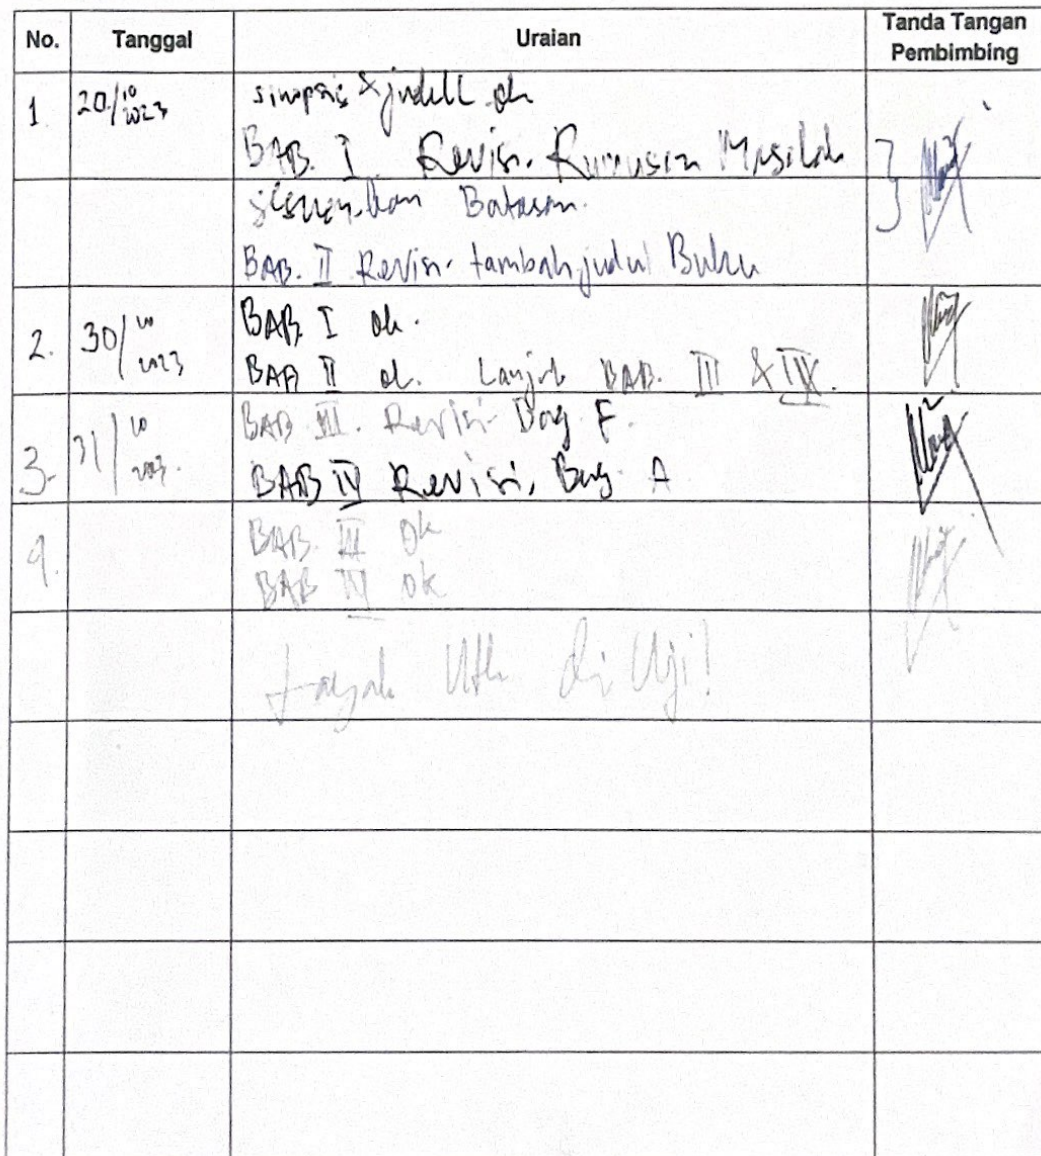 No. Tanggal Uraian Tanda Tangan Pembimbing
1. 20/10 2023 sinopsis & judul ok
BAB. I Revisi. Rumusan Masalah
sesuaikan Batasan.
BAB. II Revisi. tambah judul Buku
2. 30/10 2023 BAB I ok.
BAB II ok. Lanjut BAB. III & IV.
3. 31/10 2023. BAB III. Revisi Bag F.
BAB IV Revisi, Bag. A
4. BAB. III ok
BAB IV ok
Layak Utk di Uji!